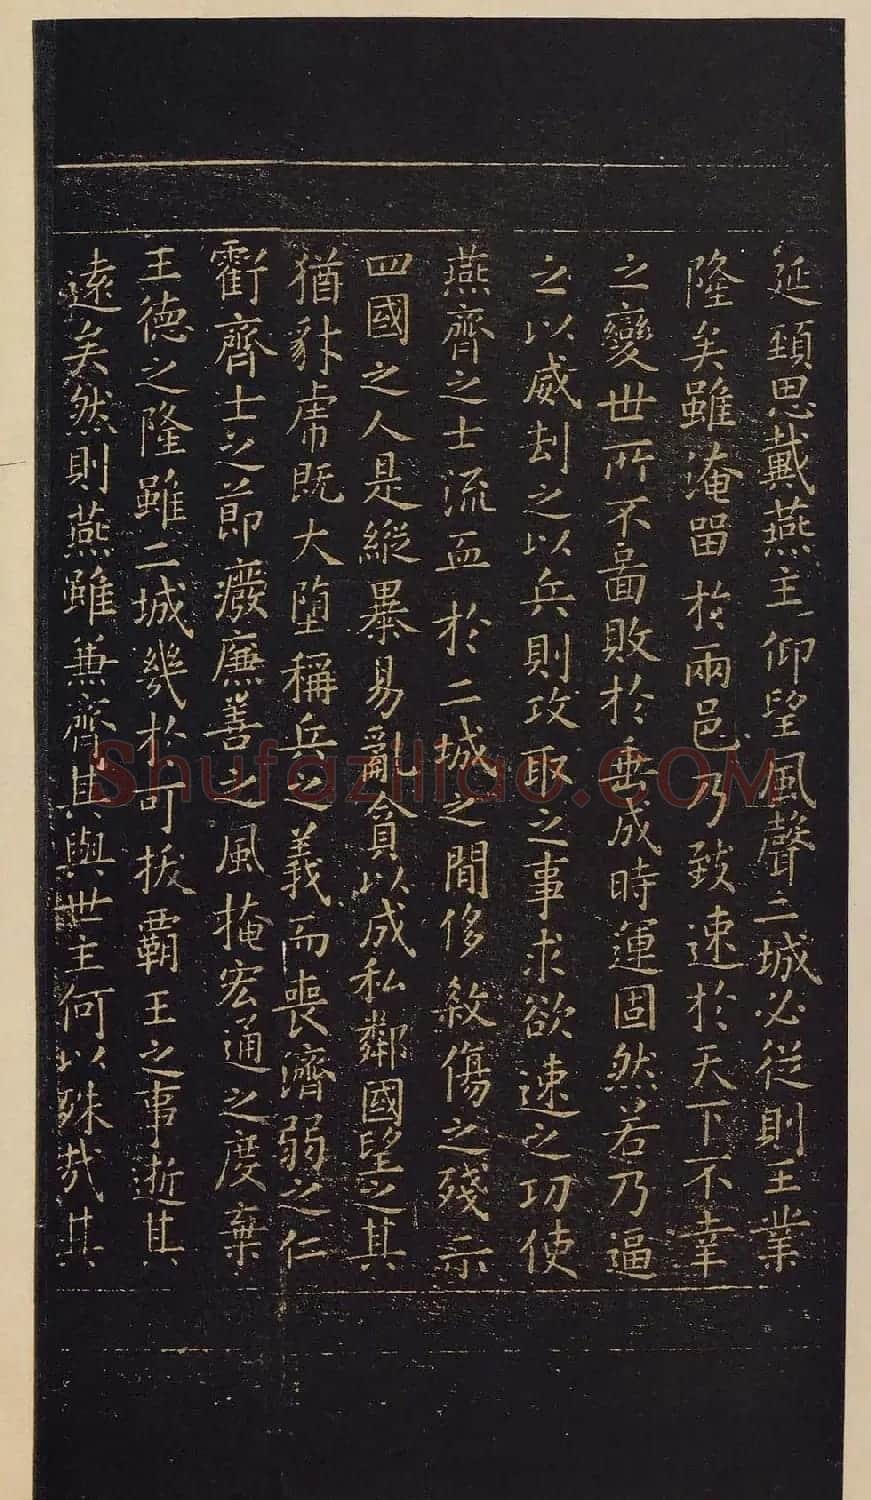 延頸思戴燕主仰望風聲二城必從則王業
隆矣雖淹留於兩邑乃致速於天下不幸
之變世所不啚敗於垂成時運固然若乃逼
之以威刦之以兵則攻取之事求欲速之功使
燕齊之士流血於二城之間侈殺傷之殘示
四國之人是縱暴易亂貪以成私鄰國望之其
猶豺虎既大墮稱兵之義而喪濟弱之仁
虧齊士之節癈廉善之風掩宏通之度棄
王德之隆雖二城幾於可拔霸王之事逝其
遠矣然則燕雖兼齊其與世主何以殊哉其
Shufaziliao.COM